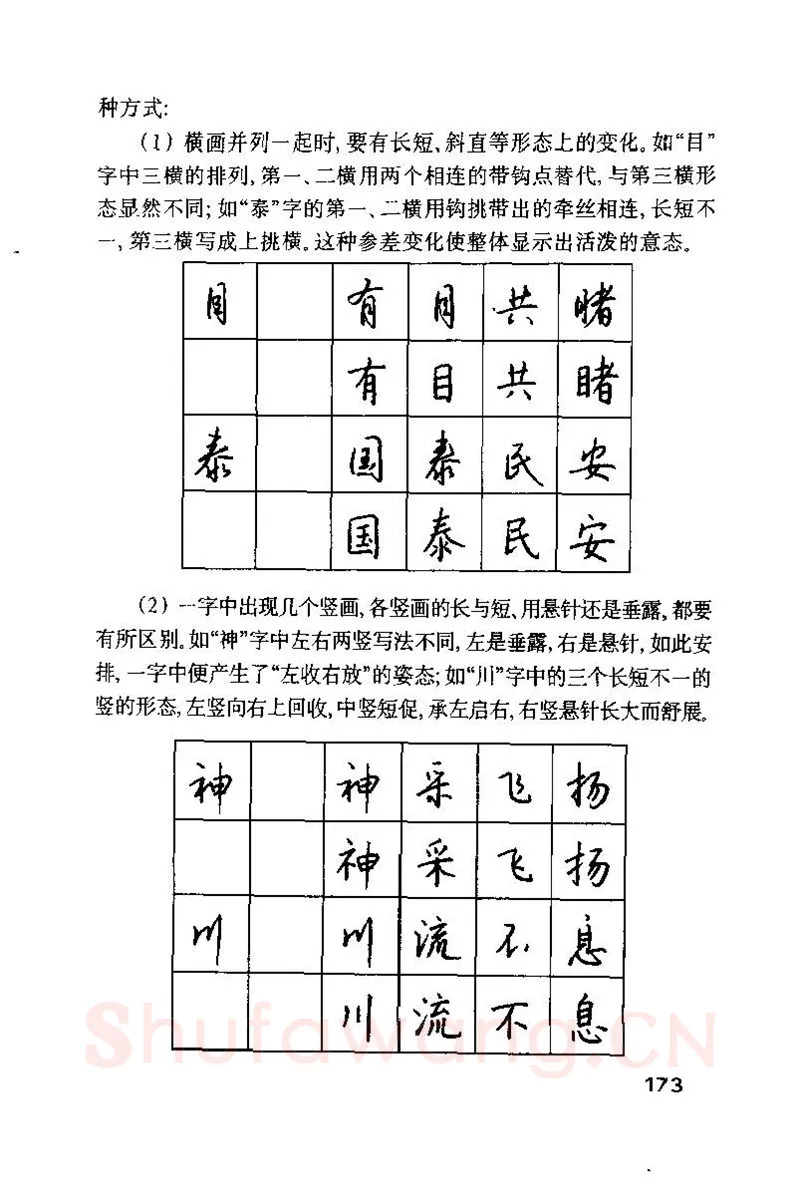 种方式:
(1) 横画并列一起时,要有长短、斜直等形态上的变化。如“目”
字中三横的排列,第一、二横用两个相连的带钩点替代,与第三横形
态显然不同;如“泰”字的第一、二横用钩挑带出的牵丝相连,长短不
一,第三横写成上挑横。这种参差变化使整体显示出活泼的意态。
目 有目共睹
有目共睹
泰 国泰民安
国泰民安
(2) 一字中出现几个竖画,各竖画的长与短、用悬针还是垂露,都要
有所区别。如“神”字中左右两竖写法不同,左是垂露,右是悬针,如此安
排,一字中便产生了“左收右放”的姿态;如“川”字中的三个长短不一的
竖的形态,左竖向右上回收,中竖短促,承左启右,右竖悬针长大而舒展。
神 神采飞扬
神采飞扬
川 川流不息
川流不息
Shufawang.CN
173